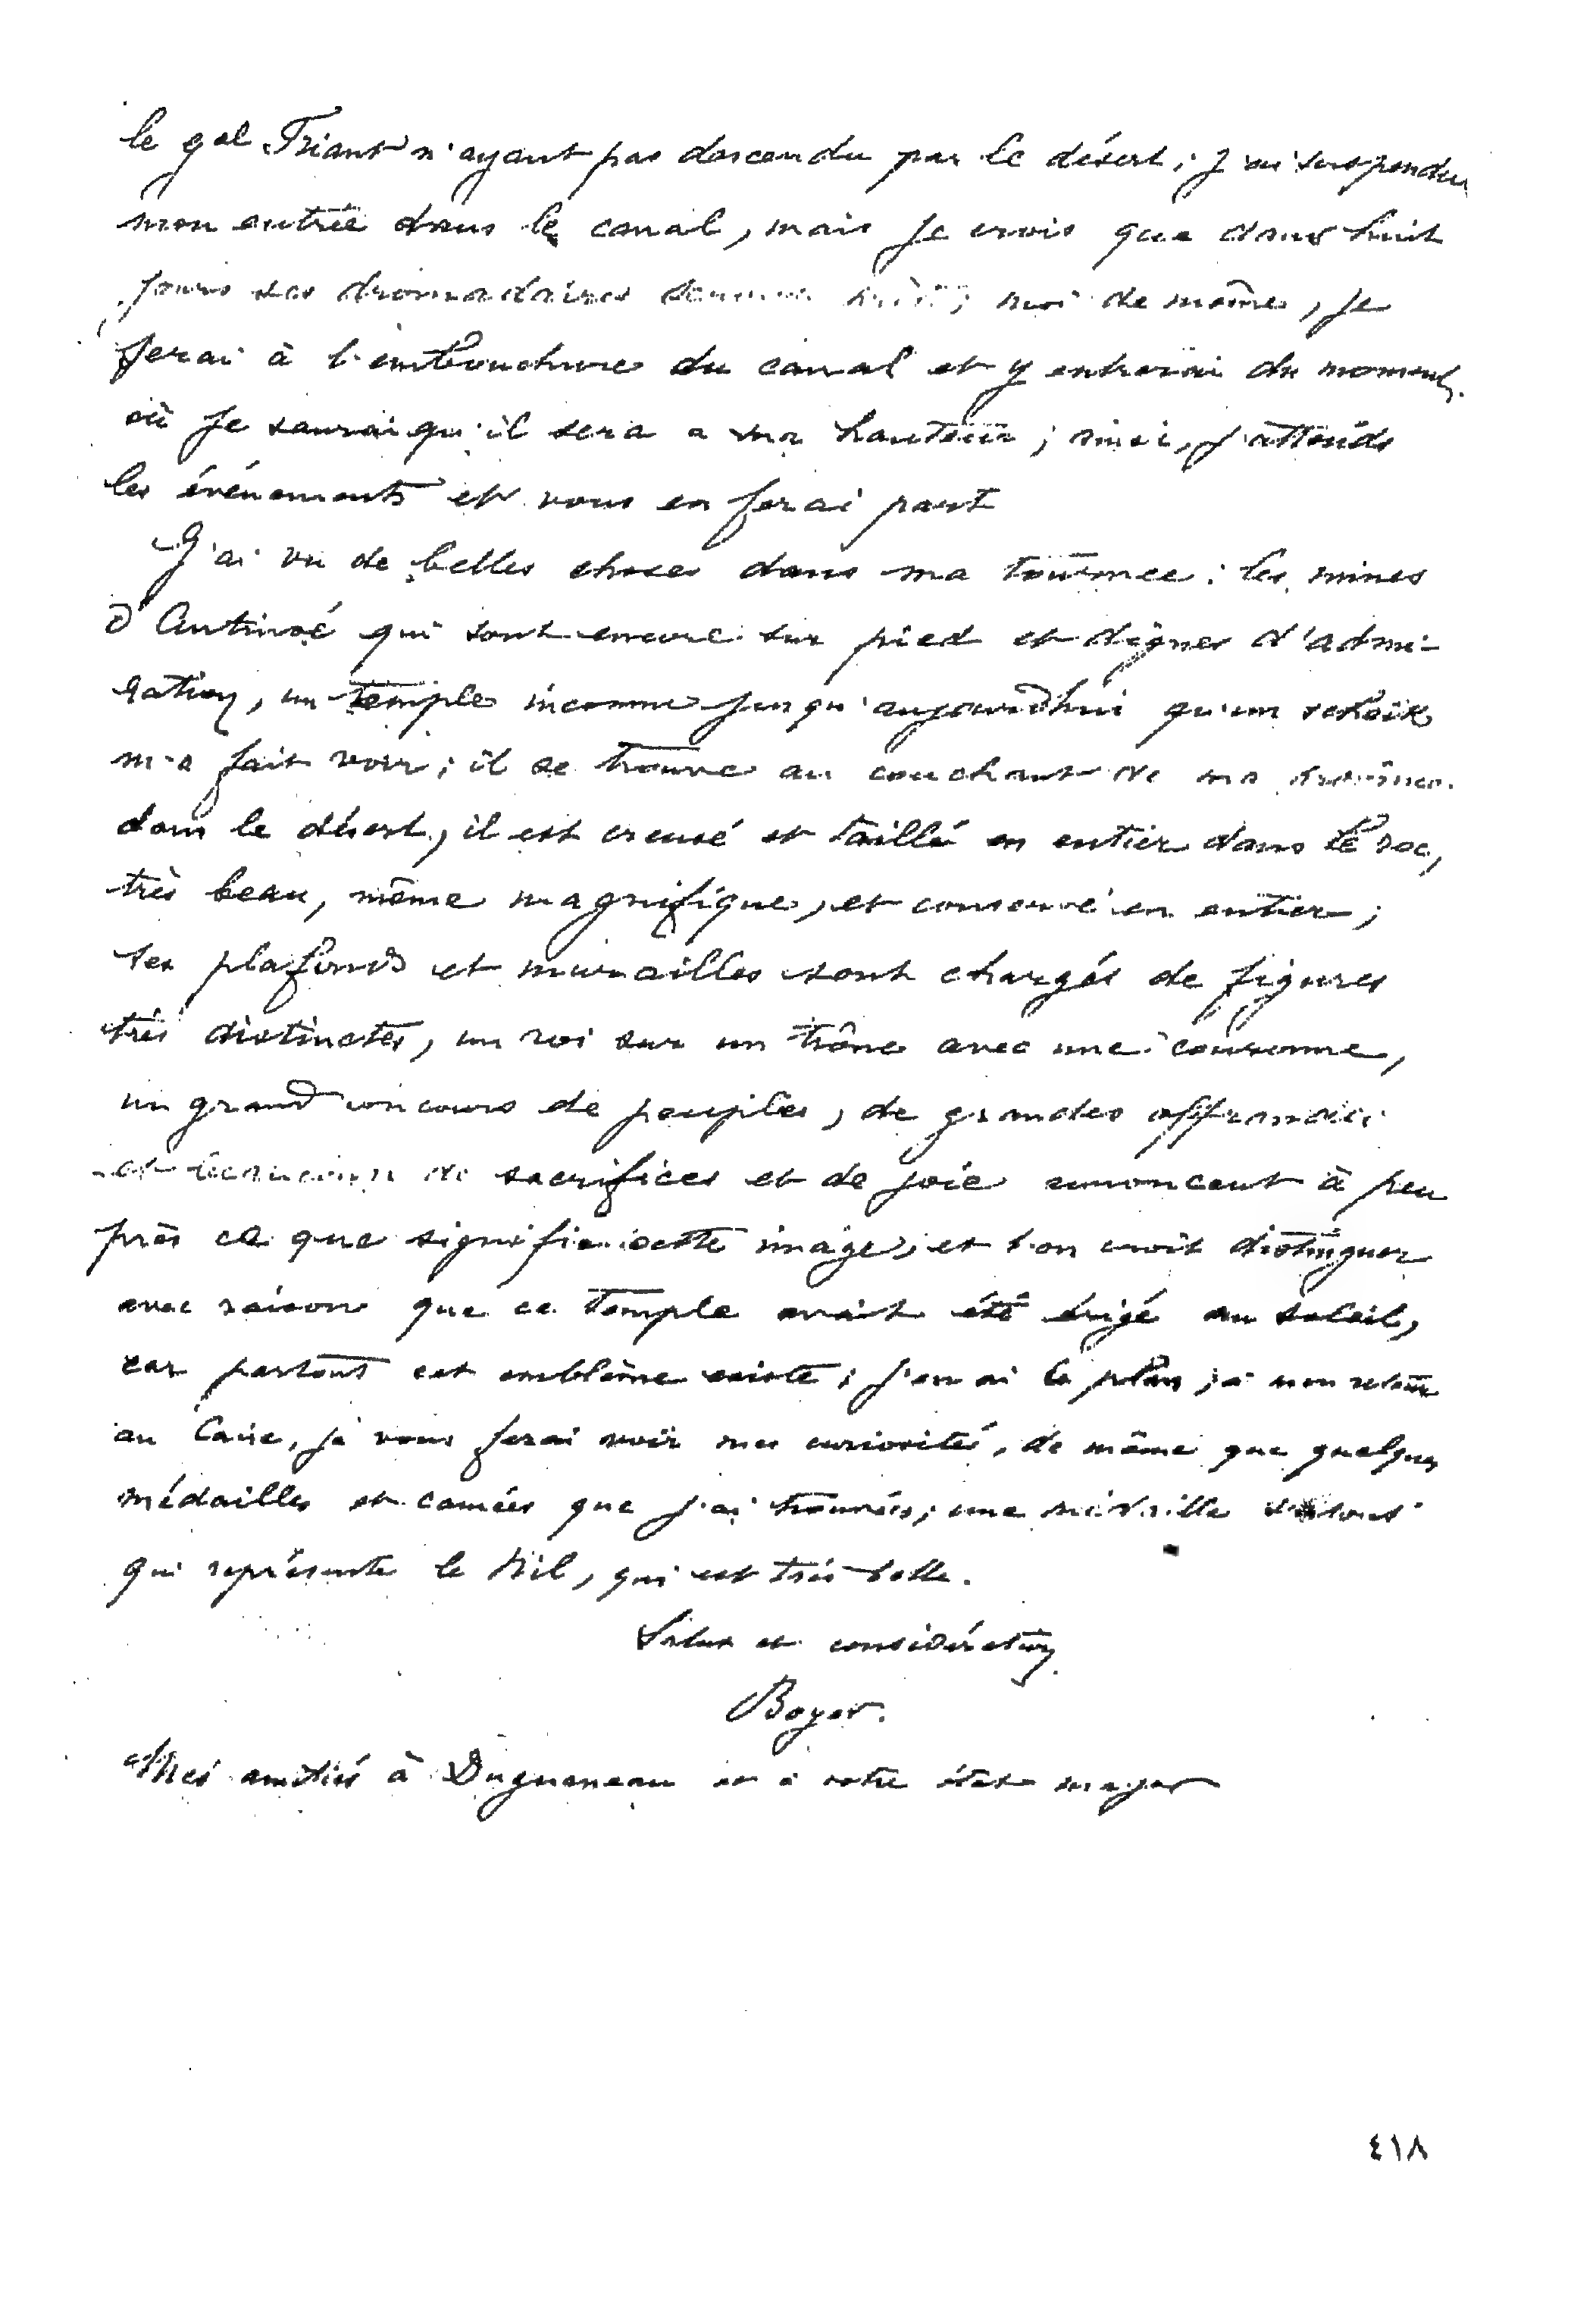 le gal Friant n'ayant pas descendu par le désert; j'ai suspendu
mon entrée dans le canal, mais je crois que dans huit
jours ses dromadaires seront prêts; moi de même, je
serai à l'embouchure du canal et y entrerai du moment
où je saurai qu'il sera a ma hauteur; ainsi, j'attends
les événements et vous en ferai part
J'ai vu de belles choses dans ma tournée: les ruines
d'Antinoé qui sont encore sur pied et dignes d'admi-
ration, un temple inconnu jusqu'aujourd'hui qu'un scheik
m'a fait voir; il se trouve au couchant de ma province
dans le désert, il est creusé et taillé en entier dans le roc,
très beau, même magnifique, et conservé en entier;
ses plafonds et murailles sont chargés de figures
très distinctes, un roi sur un trône avec une couronne,
un grand concours de peuples, de grandes offrandes
et beaucoup de sacrifices et de joie annoncent à peu
près ce que signifie cette image; et l'on croit distinguer
avec raison que ce temple avait été érigé au soleil,
car partout cet emblème existe; j'en ai le plan; à mon retour
au Caire, je vous ferai voir mes curiosités, de même que quelques
médailles et camées que j'ai trouvées; une médaille surtout
qui représente le Nil, qui est très belle.
Salut et considération
Boyer.
Mes amitiés à Duguaneau et à votre état major
٤١٨